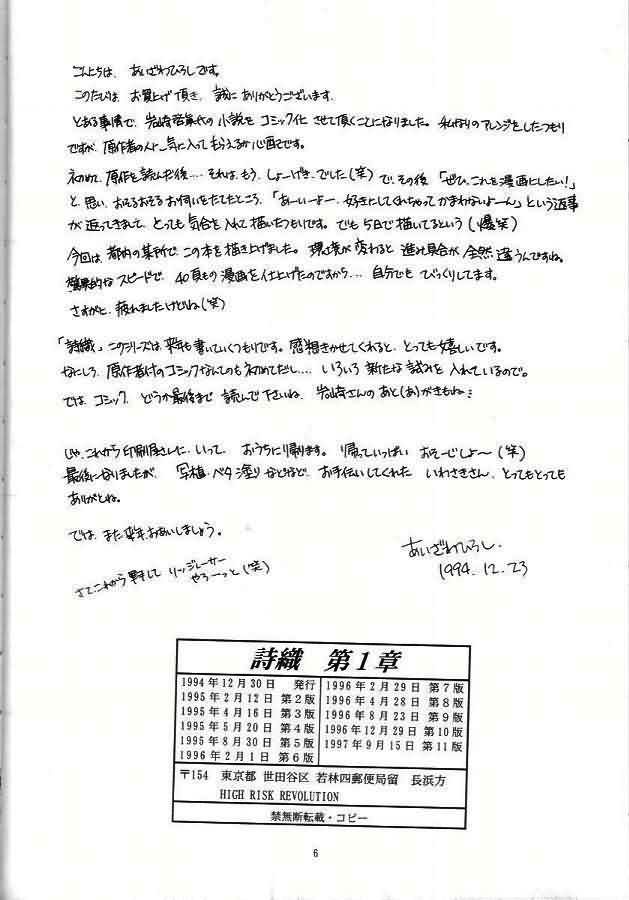 こんにちは、あいざわひろしです。
このたびは、お買上げ頂き、誠にありがとうございます。
とある事情で、岩崎啓眞氏の小説をコミック化させて頂くことになりました。私なりのアレンジをしたつもり
ですが、原作者の人に気に入ってもらえるか心配です。
初めて、原作を読んだ後…それは、もう、しょーげき、でした(笑)で、その後「ぜひ、これを漫画にしたい!」
と、思い、おそるおそるお伺いをたてたところ、「あーいーよー、好きにしてくれちゃってかまわないよーん」という返事
が返ってきました、とっても気合を入れて描いたつもりです。でも5日で描いてるという(爆笑)
今回は、都内の某所で、この本を描き上げました。環境が変わると進み具合が全然違うんですね。
驚異的なスピードで、40頁もの漫画を仕上げたのですから…自分でもびっくりしてます。
さすがに、疲れましたけどね(笑)
「詩織」このシリーズは、来年も書いていくつもりです。感想きかせてくれると、とっても嬉しいです。
なにしろ、原作者付のコミックなんてのも初めてだし…いろいろ新たな試みを入れているので。
では、コミック、どうか最後まで読んで下さいね、岩崎さんのあと(あ)がきもね
じゃ、これから印刷屋さんに、いって、おうちに帰ります。帰っていっぱいおそーじしよ〜(笑)
最後になりましたが、写植・ベタ塗りなどなど、お手伝いしてくれた いわさきさん、とってもとっても
ありがとね。
では、また来年、お会いしましょう。
さて、これから リッジレーサー
やろーっと(笑)
あいざわひろし.
1994.12.23
詩織 第1章
1994年12月30日 発行
1995年2月12日 第2版
1995年4月16日 第3版
1995年5月20日 第4版
1995年8月30日 第5版
1996年2月1日 第6版
1996年2月29日 第7版
1996年4月28日 第8版
1996年8月23日 第9版
1996年12月29日 第10版
1997年9月15日 第11版
〒154 東京都 世田谷区 若林四郵便局留 長浜方
HIGH RISK REVOLUTION
禁無断転載・コピー
6